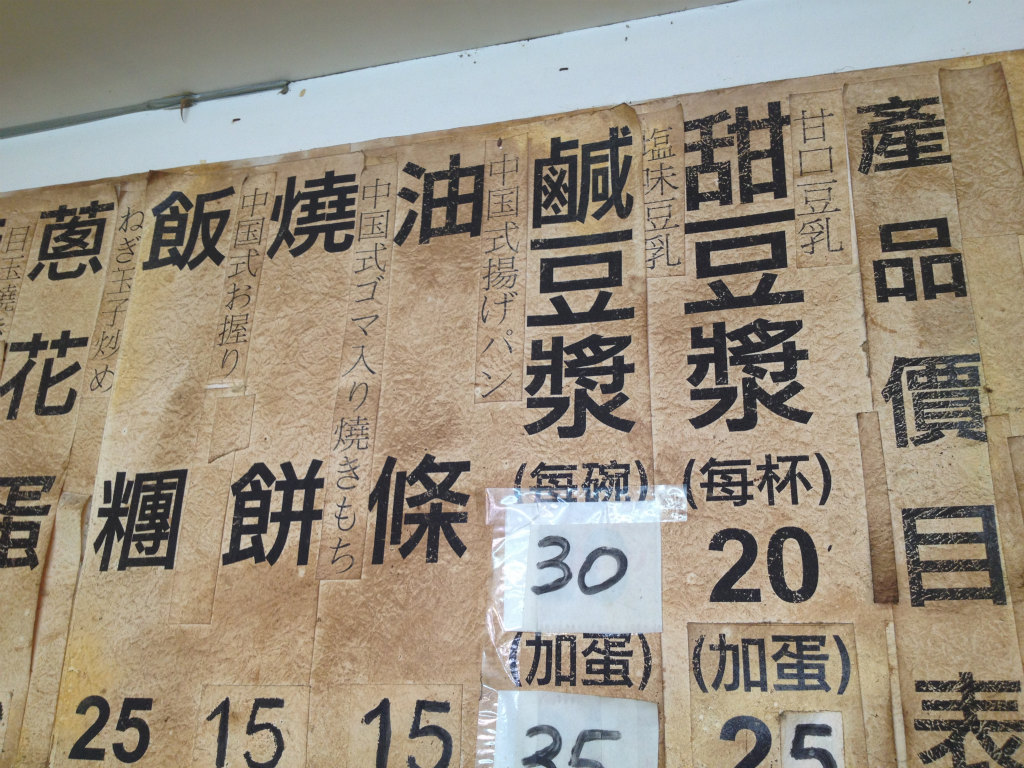 產品價目表
甘口豆乳
甜豆漿
(每杯)
20
(加蛋)
25
塩味豆乳
鹹豆漿
(每碗)
30
(加蛋)
35
中国式揚げパン
油條
15
中国式ゴマ入り燒きもち
燒餅
15
中国式お握り
飯糰
25
ねぎ玉子炒め
蔥花
蛋